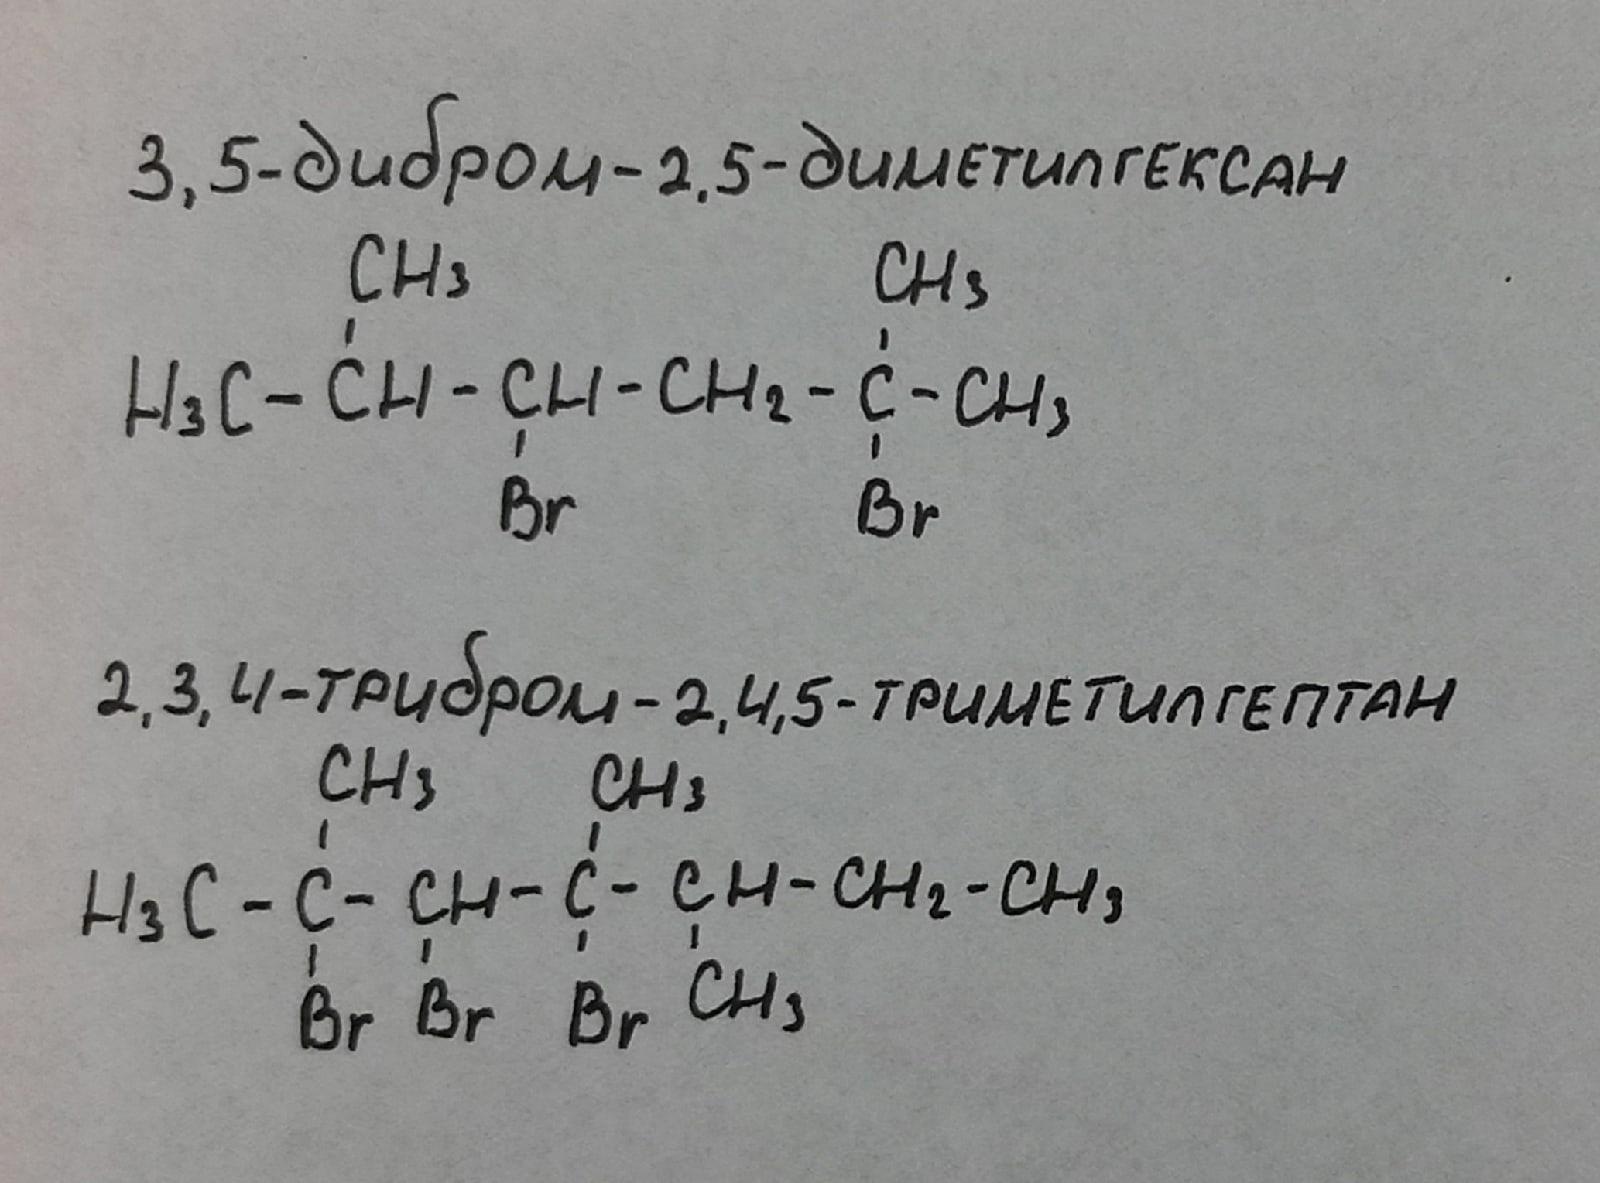 3,5-дибром-2,5-диметилгексан
CH3 CH3
H3C-CH-CH-CH2-C-CH3
Br Br
2,3,4-трибром-2,4,5-триметилгептан
CH3 CH3
H3C-C-CH-C-CH-CH2-CH3
Br Br Br CH3